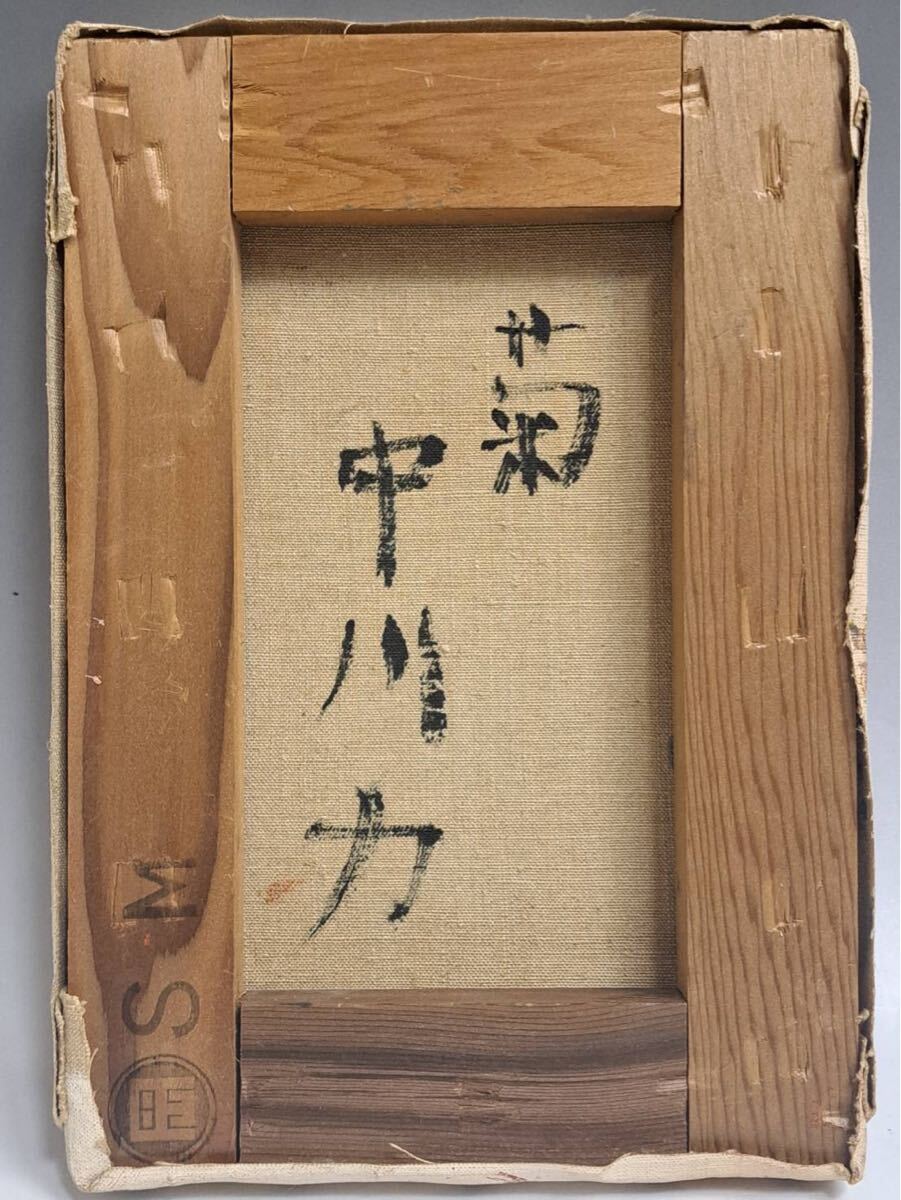 菊
中川力
SM